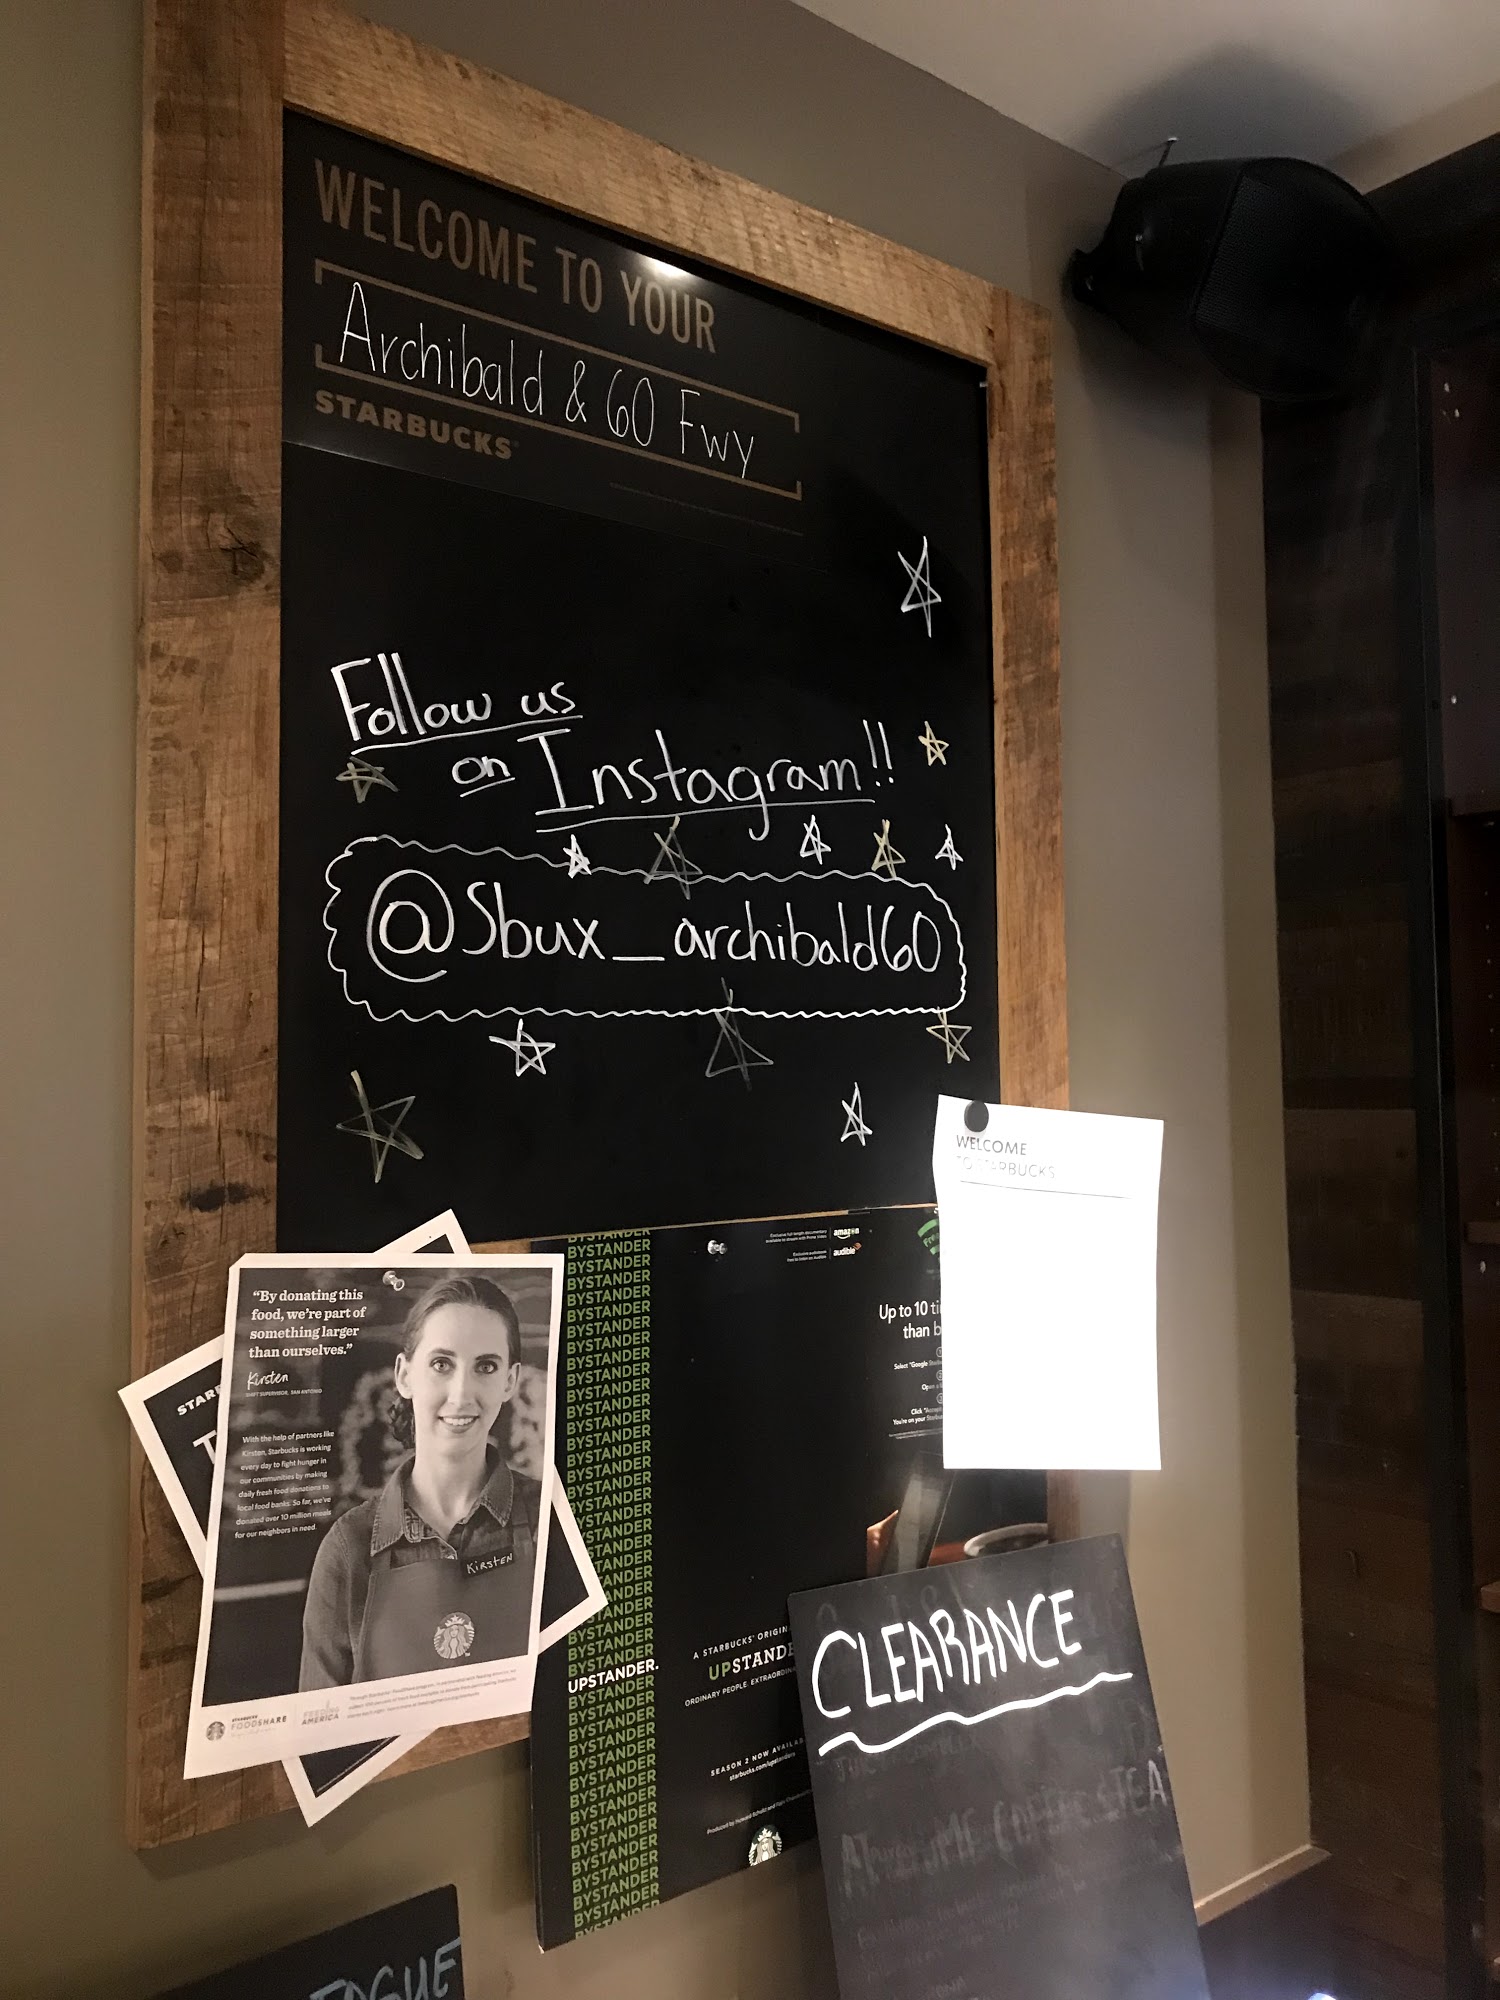 WELCOME TO YOUR
Archibald & 60 Fwy
STARBUCKS
Follow us
on Instagram!!
@Sbux_archibald60
WELCOME
TO STARBUCKS
"By donating this
food, we're part of
something larger
than ourselves."
Kirsten
SHIFT SUPERVISOR, SAN ANTONIO
With the help of partners like
Kirsten, Starbucks is working
every day to fight hunger in
our communities by making
daily fresh food donations to
local food banks. So far, we've
donated over 10 million meals
for our neighbors in need.
KirsTEN
STARBUCKS
FOODSHARE
FEEDING
AMERICA
STAR
BYSTANDER
BYSTANDER
BYSTANDER
BYSTANDER
BYSTANDER
BYSTANDER
BYSTANDER
BYSTANDER
BYSTANDER
BYSTANDER
BYSTANDER
BYSTANDER
BYSTANDER
BYSTANDER
BYSTANDER
BYSTANDER
BYSTANDER
BYSTANDER
BYSTANDER
BYSTANDER
BYSTANDER
BYSTANDER
BYSTANDER
UPSTANDER.
BYSTANDER
BYSTANDER
BYSTANDER
BYSTANDER
BYSTANDER
BYSTANDER
BYSTANDER
BYSTANDER
BYSTANDER
BYSTANDER
BYSTANDER
BYSTANDER
BYSTANDER
Exclusive full-length documentary
available to stream with Prime Video
amazon
Exclusive audiobook
free to listen on Audible
audible
Up to 10
than
Select "Google
Click "Accept
You're on your
A STARBUCKS ORIGIN
UPSTANDE
ORDINARY PEOPLE. EXTRAORDIN
SEASON 2 NOW AVAILAB
starbucks.com/upstanders
CLEARANCE